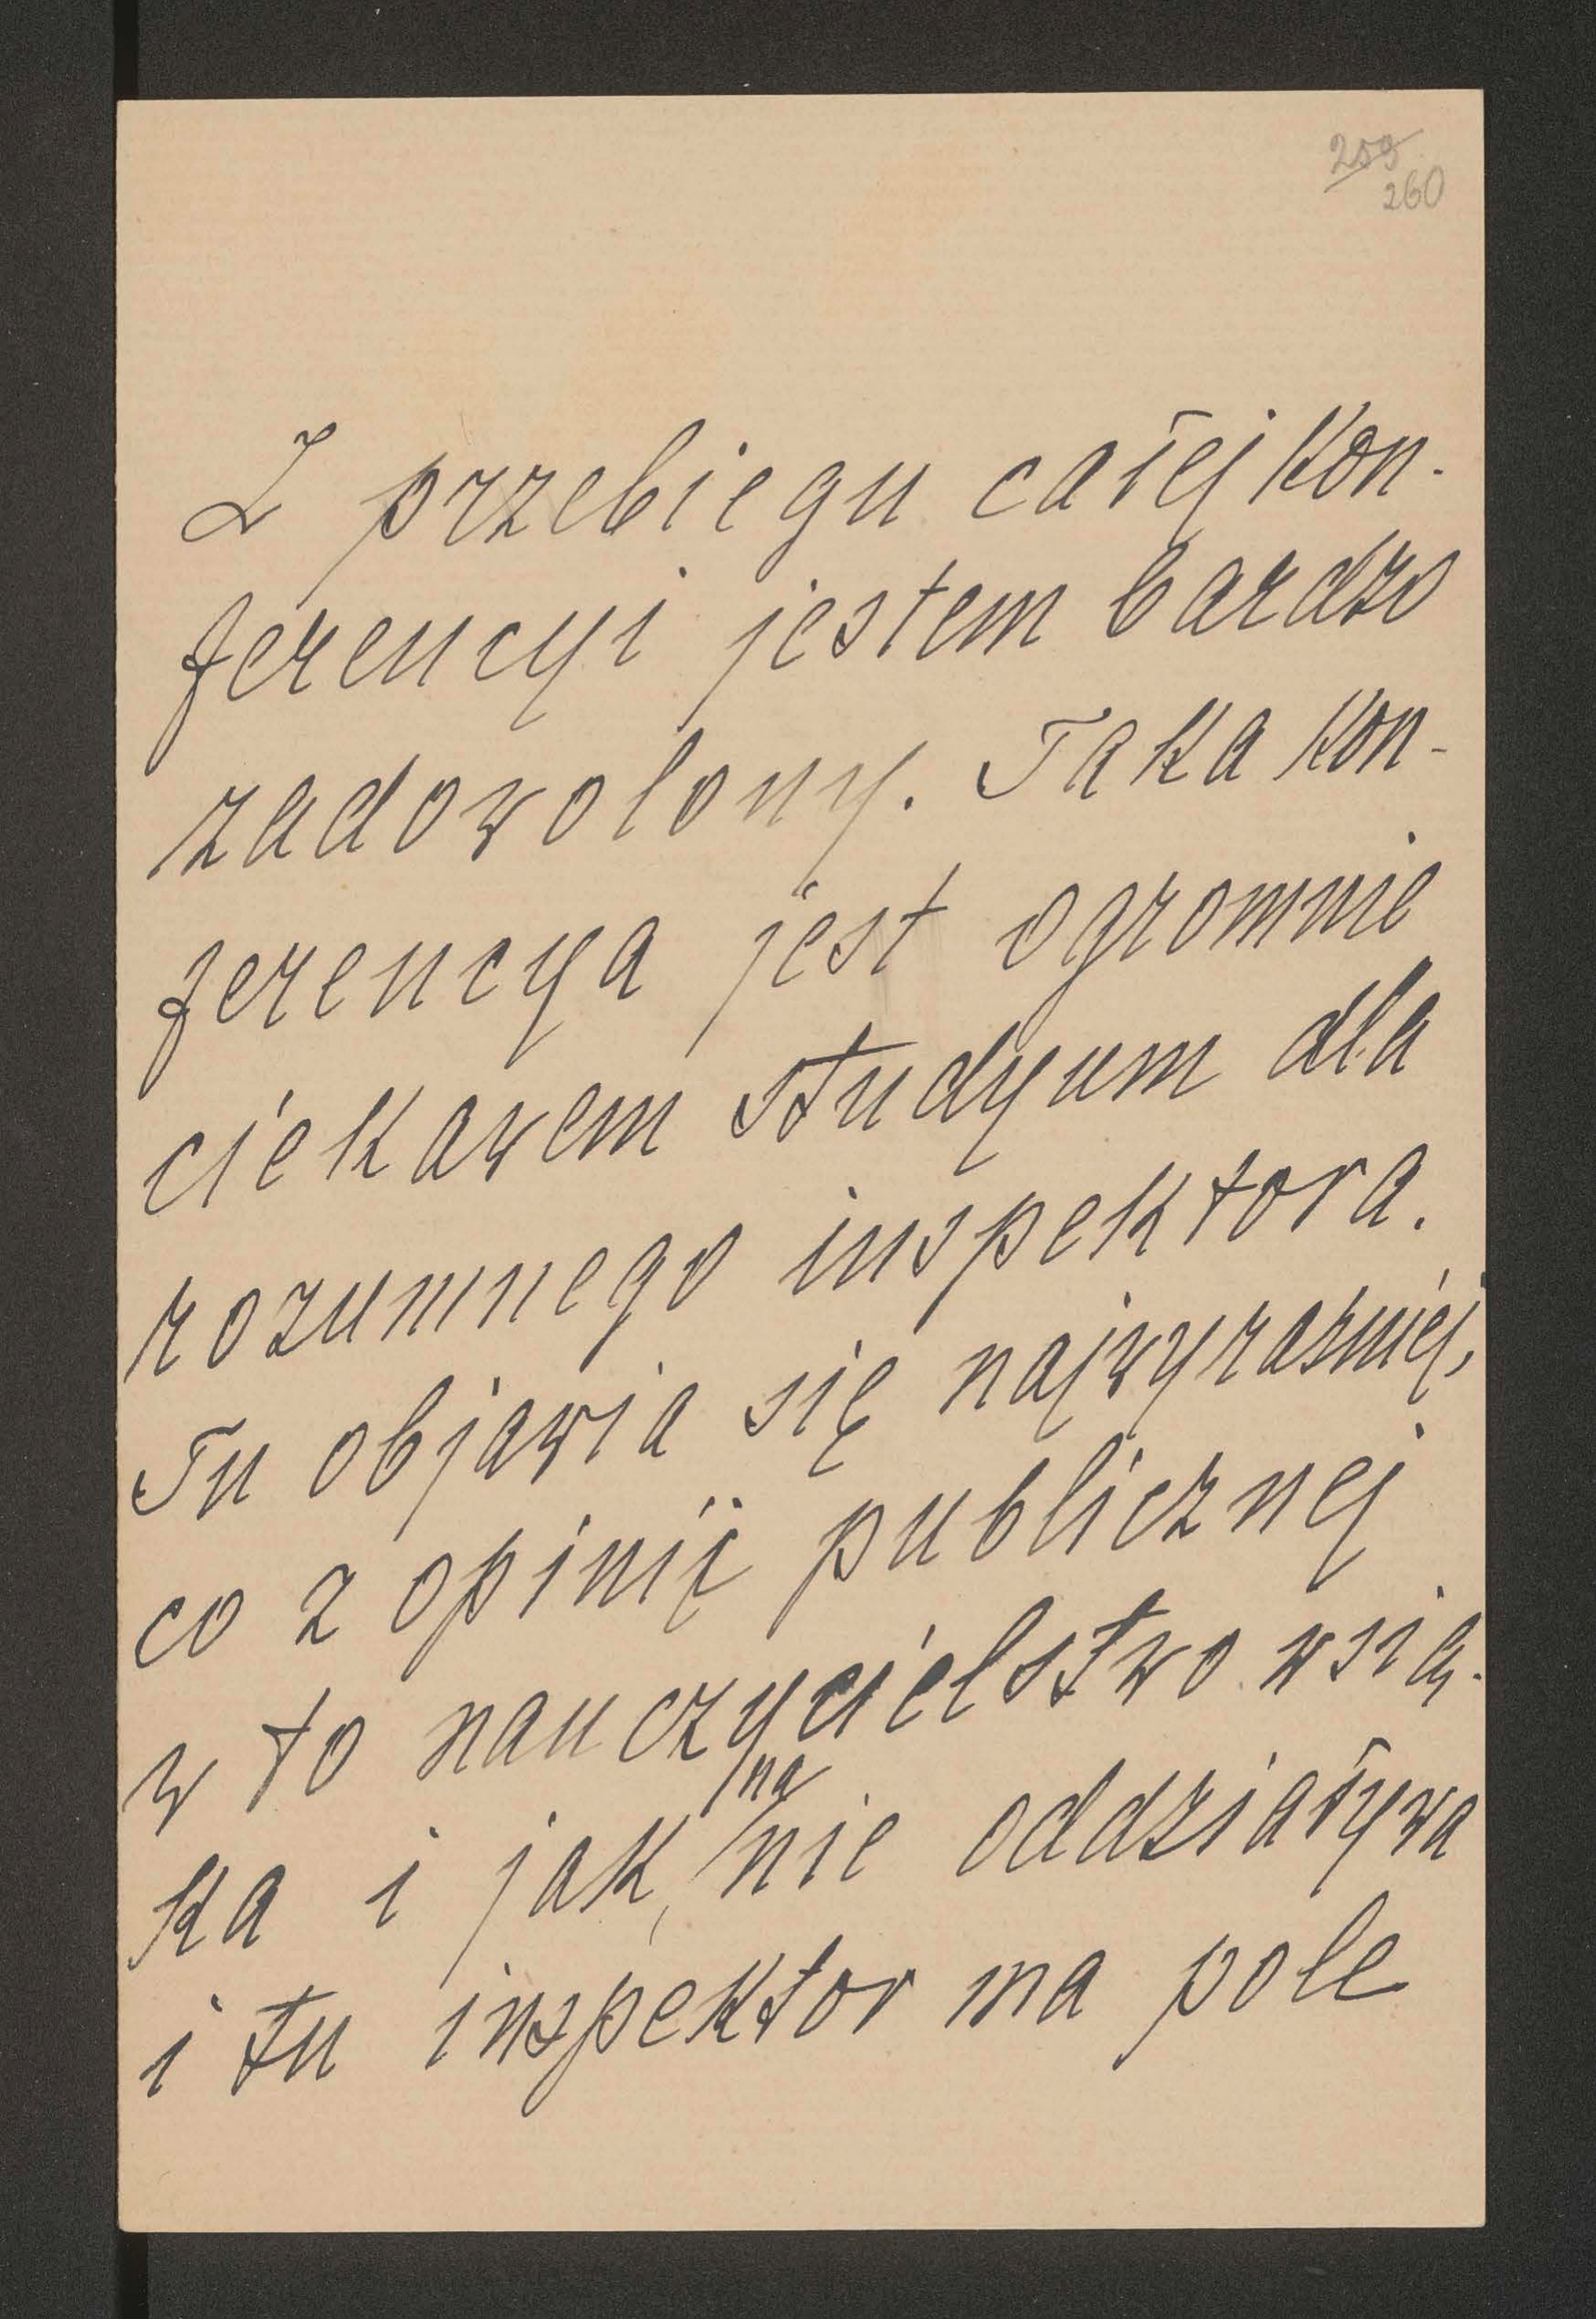 259
260
Z przebiegu całej kon-
ferencyi jestem bardzo
zadowolony. Taka kon-
ferencya jest ogromnie
ciekawem studyum dla
rozumnego inspektora.
Tu objawia się najwyraźniej,
co z opinii publicznej
w to nauczycielstwo wsią-
ka i jak na nie oddziaływa
i tu inspektor ma pole